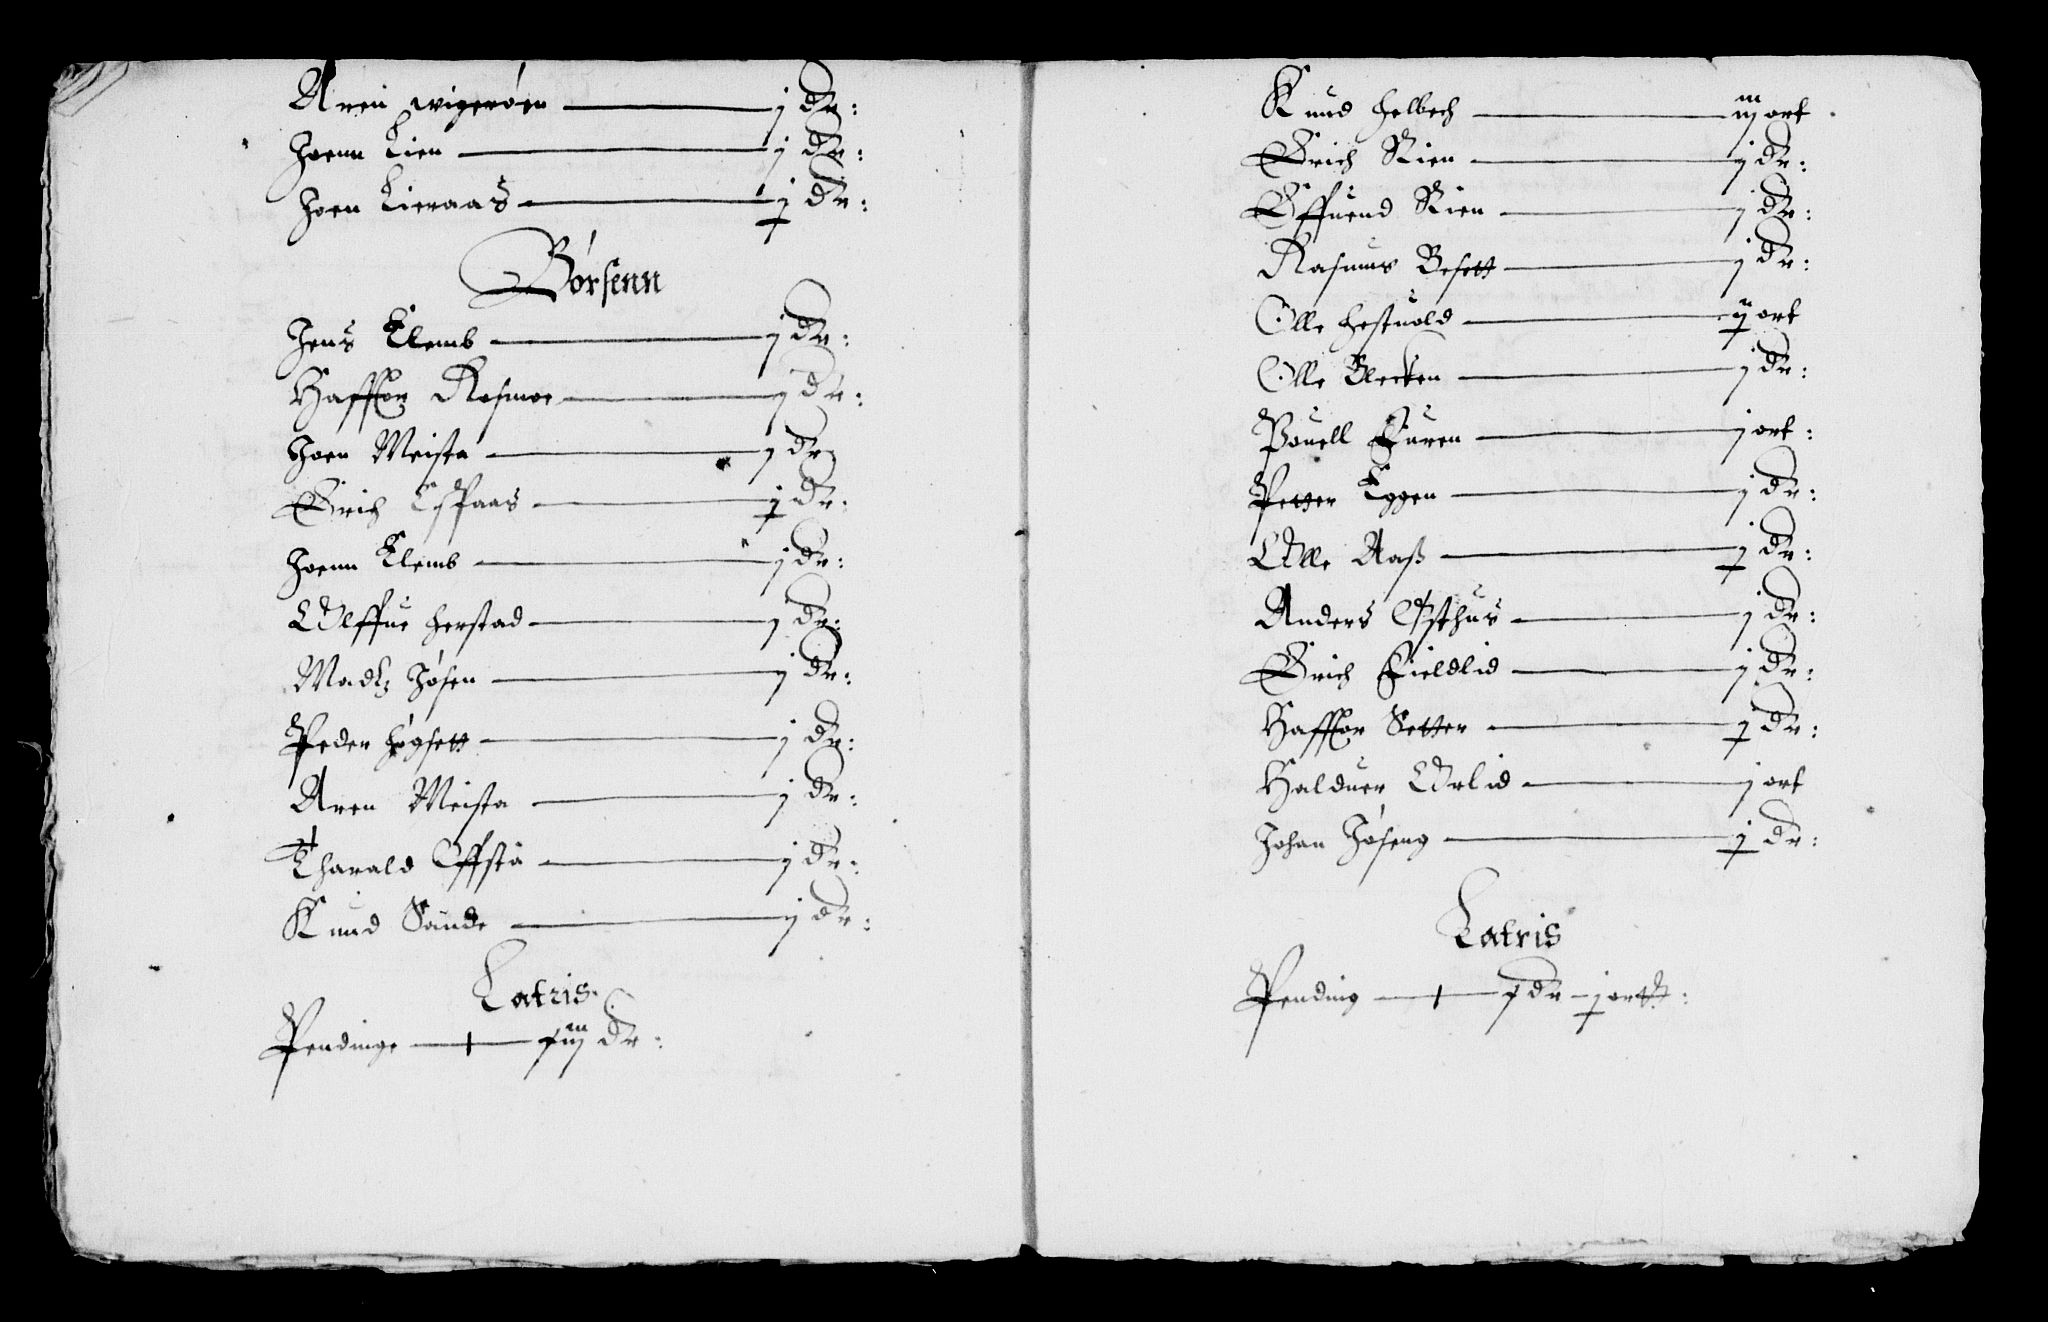 Aren wigerøen — j dr:
Joenn Lien — j dr:
Joen Lieraas — j dr:
Børsenn
Jens Klemb — j dr:
Haffuor Rosmoe — j dr:
Joen Meista — j dr
Erich Espaas — j dr:
Joenn Klemb — j dr:
Olluffue Herstad — j dr:
Madtz Jøsen — j dr:
Peder Høgsett — j dr:
Aren Meista — j dr:
Tharald Offsta — j dr:
Knud Sunde — j dr:
Latris
Pendinge — dr:
Knud Helbech — iij ort
Erich Rien — j dr:
Effuend Rien — j dr:
Rasmus Besett — j dr:
Olle Hestuold — ort
Olle Blecken — j dr:
Pouell Furen — j ort:
Petter Eggen — j dr:
Olle Aaß — j dr:
Anders Østhus — j dr:
Erich Fieldlid — j dr:
Haffuor Setter — j dr:
Halduer Urlid — j ort
Johan Jøseng — j dr:
Latris
Pending — dr — j ort: